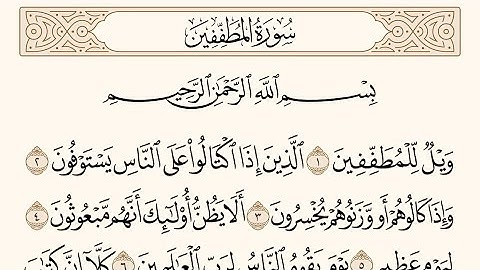 سُورَةُ المُطَفِّفِينَ
بِسْمِ ٱللَّهِ ٱلرَّحْمَٰنِ ٱلرَّحِيمِ
وَيْلٌ لِّلْمُطَفِّفِينَ ١ ٱلَّذِينَ إِذَا ٱكْتَالُوا۟ عَلَى ٱلنَّاسِ يَسْتَوْفُونَ ٢
وَإِذَا كَالُوهُمْ أَو وَّزَنُوهُمْ يُخْسِرُونَ ٣ أَلَا يَظُنُّ أُو۟لَٰٓئِكَ أَنَّهُم مَّبْعُوثُونَ ٤
لِيَوْمٍ عَظِيمٍ ٥ يَوْمَ يَقُومُ ٱلنَّاسُ لِرَبِّ ٱلْعَٰلَمِينَ ٦ كَلَّآ إِنَّ كِتَٰبَ